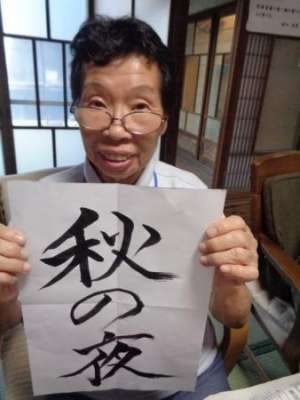 秋の夜